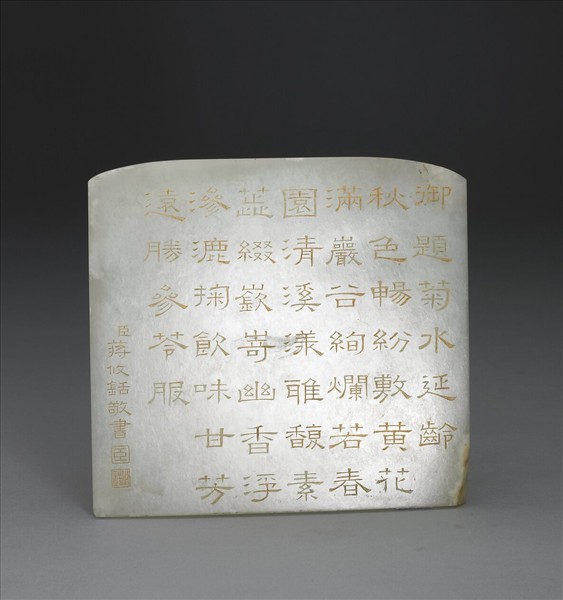 御題菊水延齡
秋色暢紛敷黃花
滿巖谷絢爛若春
園清溪漾雅馥素
蕋綴嶔嵜幽香浮
滲漉掬飲味甘芳
遠勝參苓服
臣蔣攸銛敬書
臣